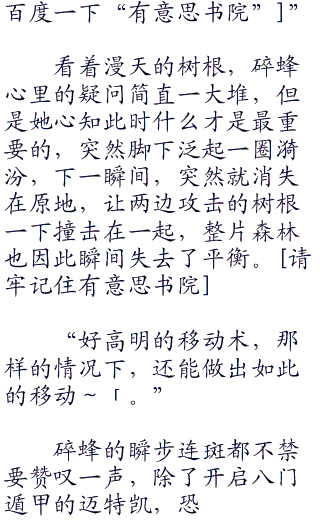 百度一下“有意思书院”]”
看着漫天的树根，碎蜂
心里的疑问简直一大堆，但
是她心知此时什么才是最重
要的，突然脚下泛起一圈漪
汾，下一瞬间，突然就消失
在原地，让两边攻击的树根
一下撞击在一起，整片森林
也因此瞬间失去了平衡。[请
牢记住有意思书院]
“好高明的移动术，那
样的情况下，还能做出如此
的移动～「。”
碎蜂的瞬步连斑都不禁
要赞叹一声，除了开启八门
遁甲的迈特凯，恐